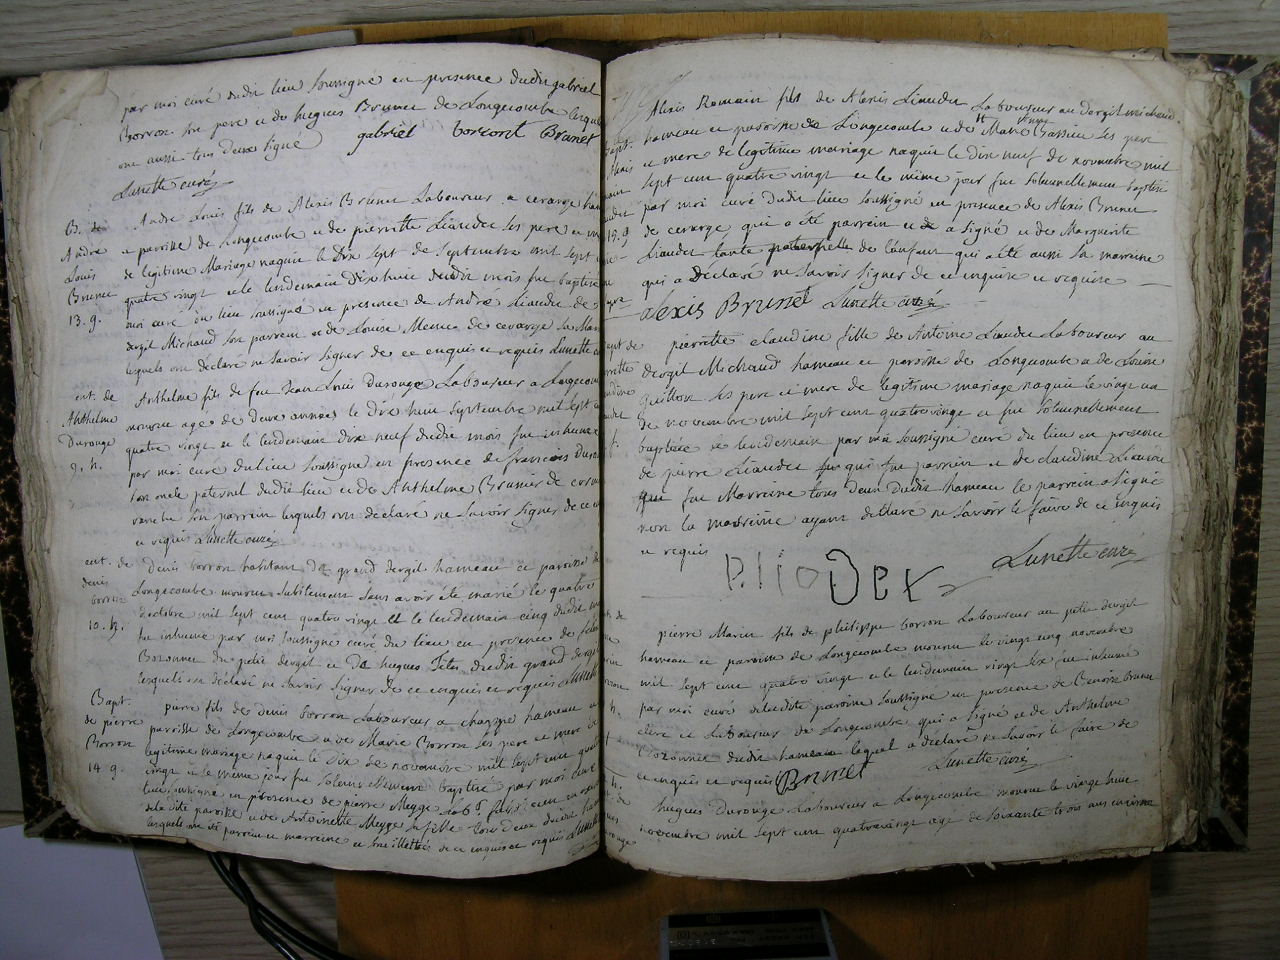 par moi curé dudit lieu soussigné en presence dudit gabriel
Borron son pere et de hugues Brunet de Longecombe lesquels
ont aussi tous deux signé gabriel borront Brunet
Lunette curé
B. de
André
Louis
Brunet
13. g.
André Louis fils de Alexis Brunet Laboureur a cerarge
et paroisse de Longecombe et de pierrette Liaudet ses pere et
de legitime Mariage naquit le dix sept de septembre mil sept
quatre vingt et le lendemain dix huit dudit mois fut baptisé
moi curé du lieu soussigné en presence de André Liaudet de
dergit Michaud son parrein et de Louise de cerarge sa
lesquels ont declaré ne savoir signer de ce enquis et requis Lunette
ent. de
Anthelme
Durouge
9. h.
Anthelme fils de feu Jean Louis Durouge Laboureur a
mourut age de deux annees le dix huit septembre mil sept
quatre vingt et le lendemain dix neuf dudit mois fut inhumé
par moi curé du lieu soussigné en presence de francois
son oncle paternel dudit lieu et de Anthelme Brunier de
son parrein lesquels ont declaré ne savoir signer de ce
et requis Lunette curé
ent. de
denis
borron
10. h.
denis borron habitant du grand dergit hameau et paroisse de
Longecombe mourut subitement sans avoir été marié le quatre
d'octobre mil sept cent quatre vingt et le lendemain cinq dudit
fut inhumé par moi soussigné curé du lieu en presence de
du petit dergit et de hugues dudit grand dergit
lesquels ont declaré ne savoir signer de ce enquis et requis
Bapt.
de pierre
Borron
14 g.
pierre fils de denis borron Laboureur a hameau
parroisse de Longecombe et de Marie Borron ses pere et mere de
legitime mariage naquit le dix de novembre mil sept cent quatre
vingt et le meme jour fut solennellement baptisé par moi curé
lieu soussigné en presence de pierre
de la dite paroisse et de Antoinette sa fille tous deux dudit
lesquels ont été parrein et marreine et sont illettrés de ce enquis et requis
Alexis Romain fils de Alexis Liaudet Laboureur au dergit michaud
hameau et paroisse de Longecombe et de Marie ses pere
et mere de legitime mariage naquit le dix neuf de novembre mil
sept cent quatre vingt et le même jour fut solennellement baptisé
par moi curé dudit lieu soussigné en presence de Alexis Brunet
15. g
de cerarge qui a été parrein et a signé et de Marguerite
Liaudet tante paternelle de l'enfant qui a été aussi sa marreine
qui a declaré ne savoir signer de ce enquise et requise
alexis Brunet Lunette curé
pierrette claudine fille de Antoine Liaudet Laboureur au
dergit Michaud hameau et paroisse de Longecombe et de Louise
guillon ses pere et mere de legitime mariage naquit le vingt un
de novembre mil sept cent quatre vingt et fut solennellement
baptisée le lendemain par moi soussigné curé du lieu en presence
de pierre Liaudet qui fut parrein et de claudine Liaudet
qui fut Marreine tous deux dudit hameau le parrein a signé
non la marreine ayant declaré ne savoir le faire de ce enquis
et requis P. lioDet Lunette curé
pierre Marin fils de philippe borron Laboureur au petit dergit
hameau et paroisse de Longecombe mourut le vingt cinq novembre
mil sept cent quatre vingt et le lendemain vingt six fut inhumé
par moi curé de ladite paroisse soussigné en presence de Benoit Brunet
Laboureur de Longecombe qui a signé et de Anthelme
dudit hameau lequel a declaré ne savoir le faire de
ce enquis et requis Brunet Lunette curé
hugues Durouge Laboureur a Longecombe mourut le vingt huit
novembre mil sept cent quatrevingt agé de soixante trois ans environ